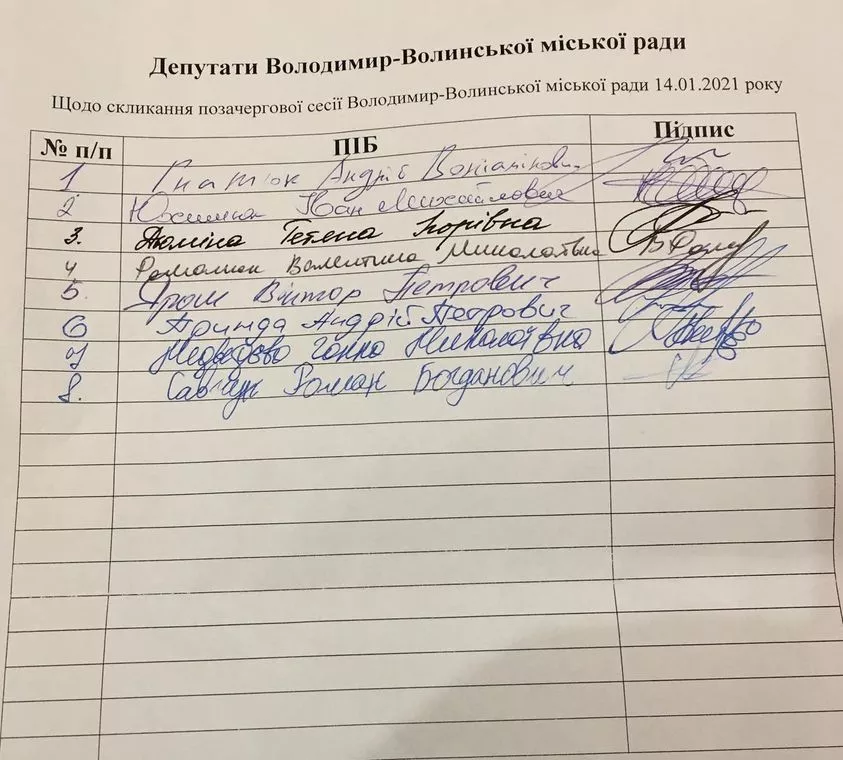 Депутати Володимир-Волинської міської ради
Щодо скликання позачергової сесії Володимир-Волинської міської ради 14.01.2021 року
№ п/п ПІБ Підпис
1 Гнатюк Андрій Веніамінович
2 Іван Михайлович
3. Дюміна Тетяна Ігорівна
4 Романюк Валентина Миколаївна
5. Віктор Петрович
6 Принда Андрій Петрович
7 Ганна Миколаївна
8. Роман Богданович